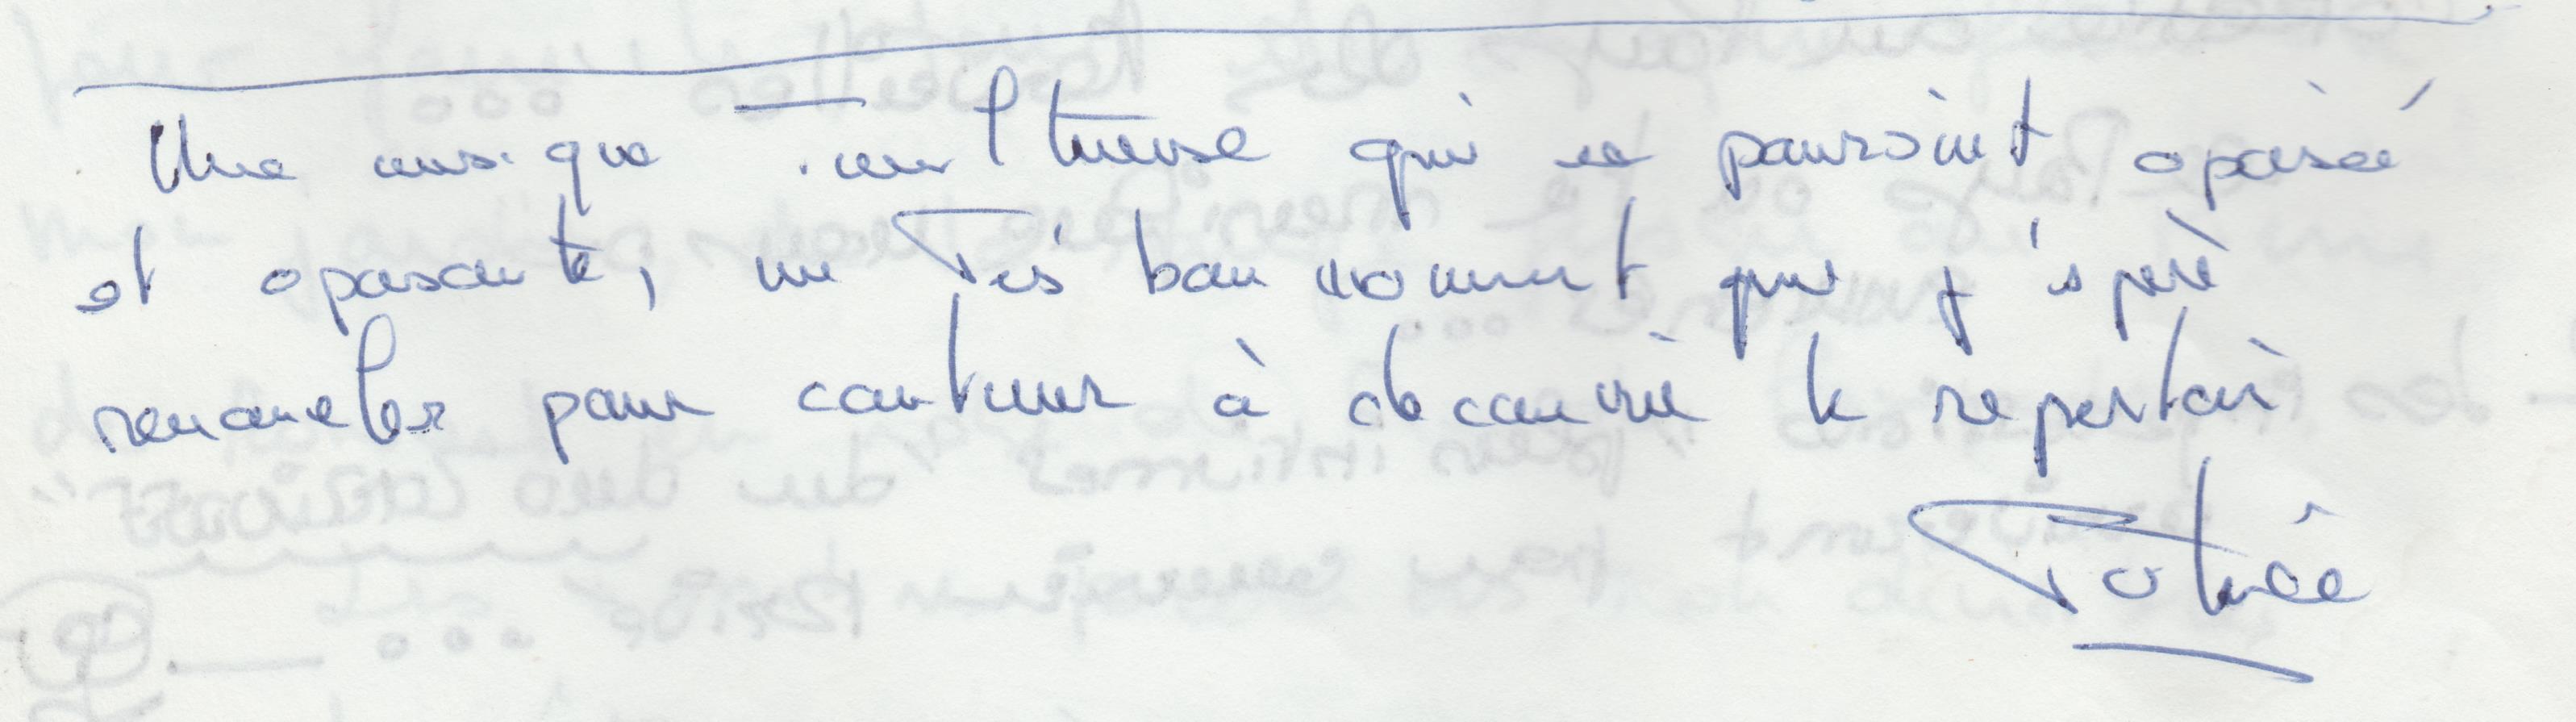 Une musique tumultueuse qui se poursuit apaisé
et apaisante, un très bon moment que j'espère
renouveler pour continuer à découvrir le répertoire